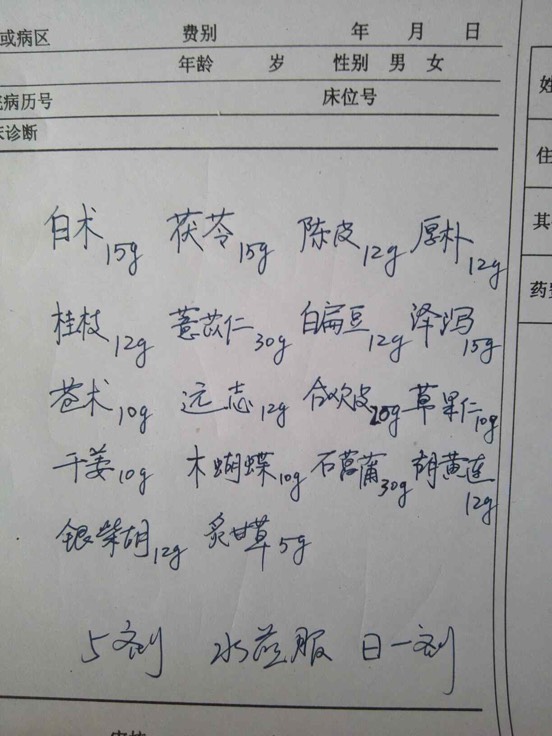 或病区 费别 年 月 日
年龄 岁 性别 男 女
病历号 床位号
床诊断
白术15g 茯苓15g 陈皮12g 厚朴12g
桂枝12g 薏苡仁30g 白扁豆12g 泽泻15g
苍术10g 远志12g 合欢皮20g 草果仁10g
干姜10g 木蝴蝶10g 石菖蒲30g 胡黄连12g
银柴胡12g 炙甘草5g
5剂 水煎服 日一剂
姓
住
其
药